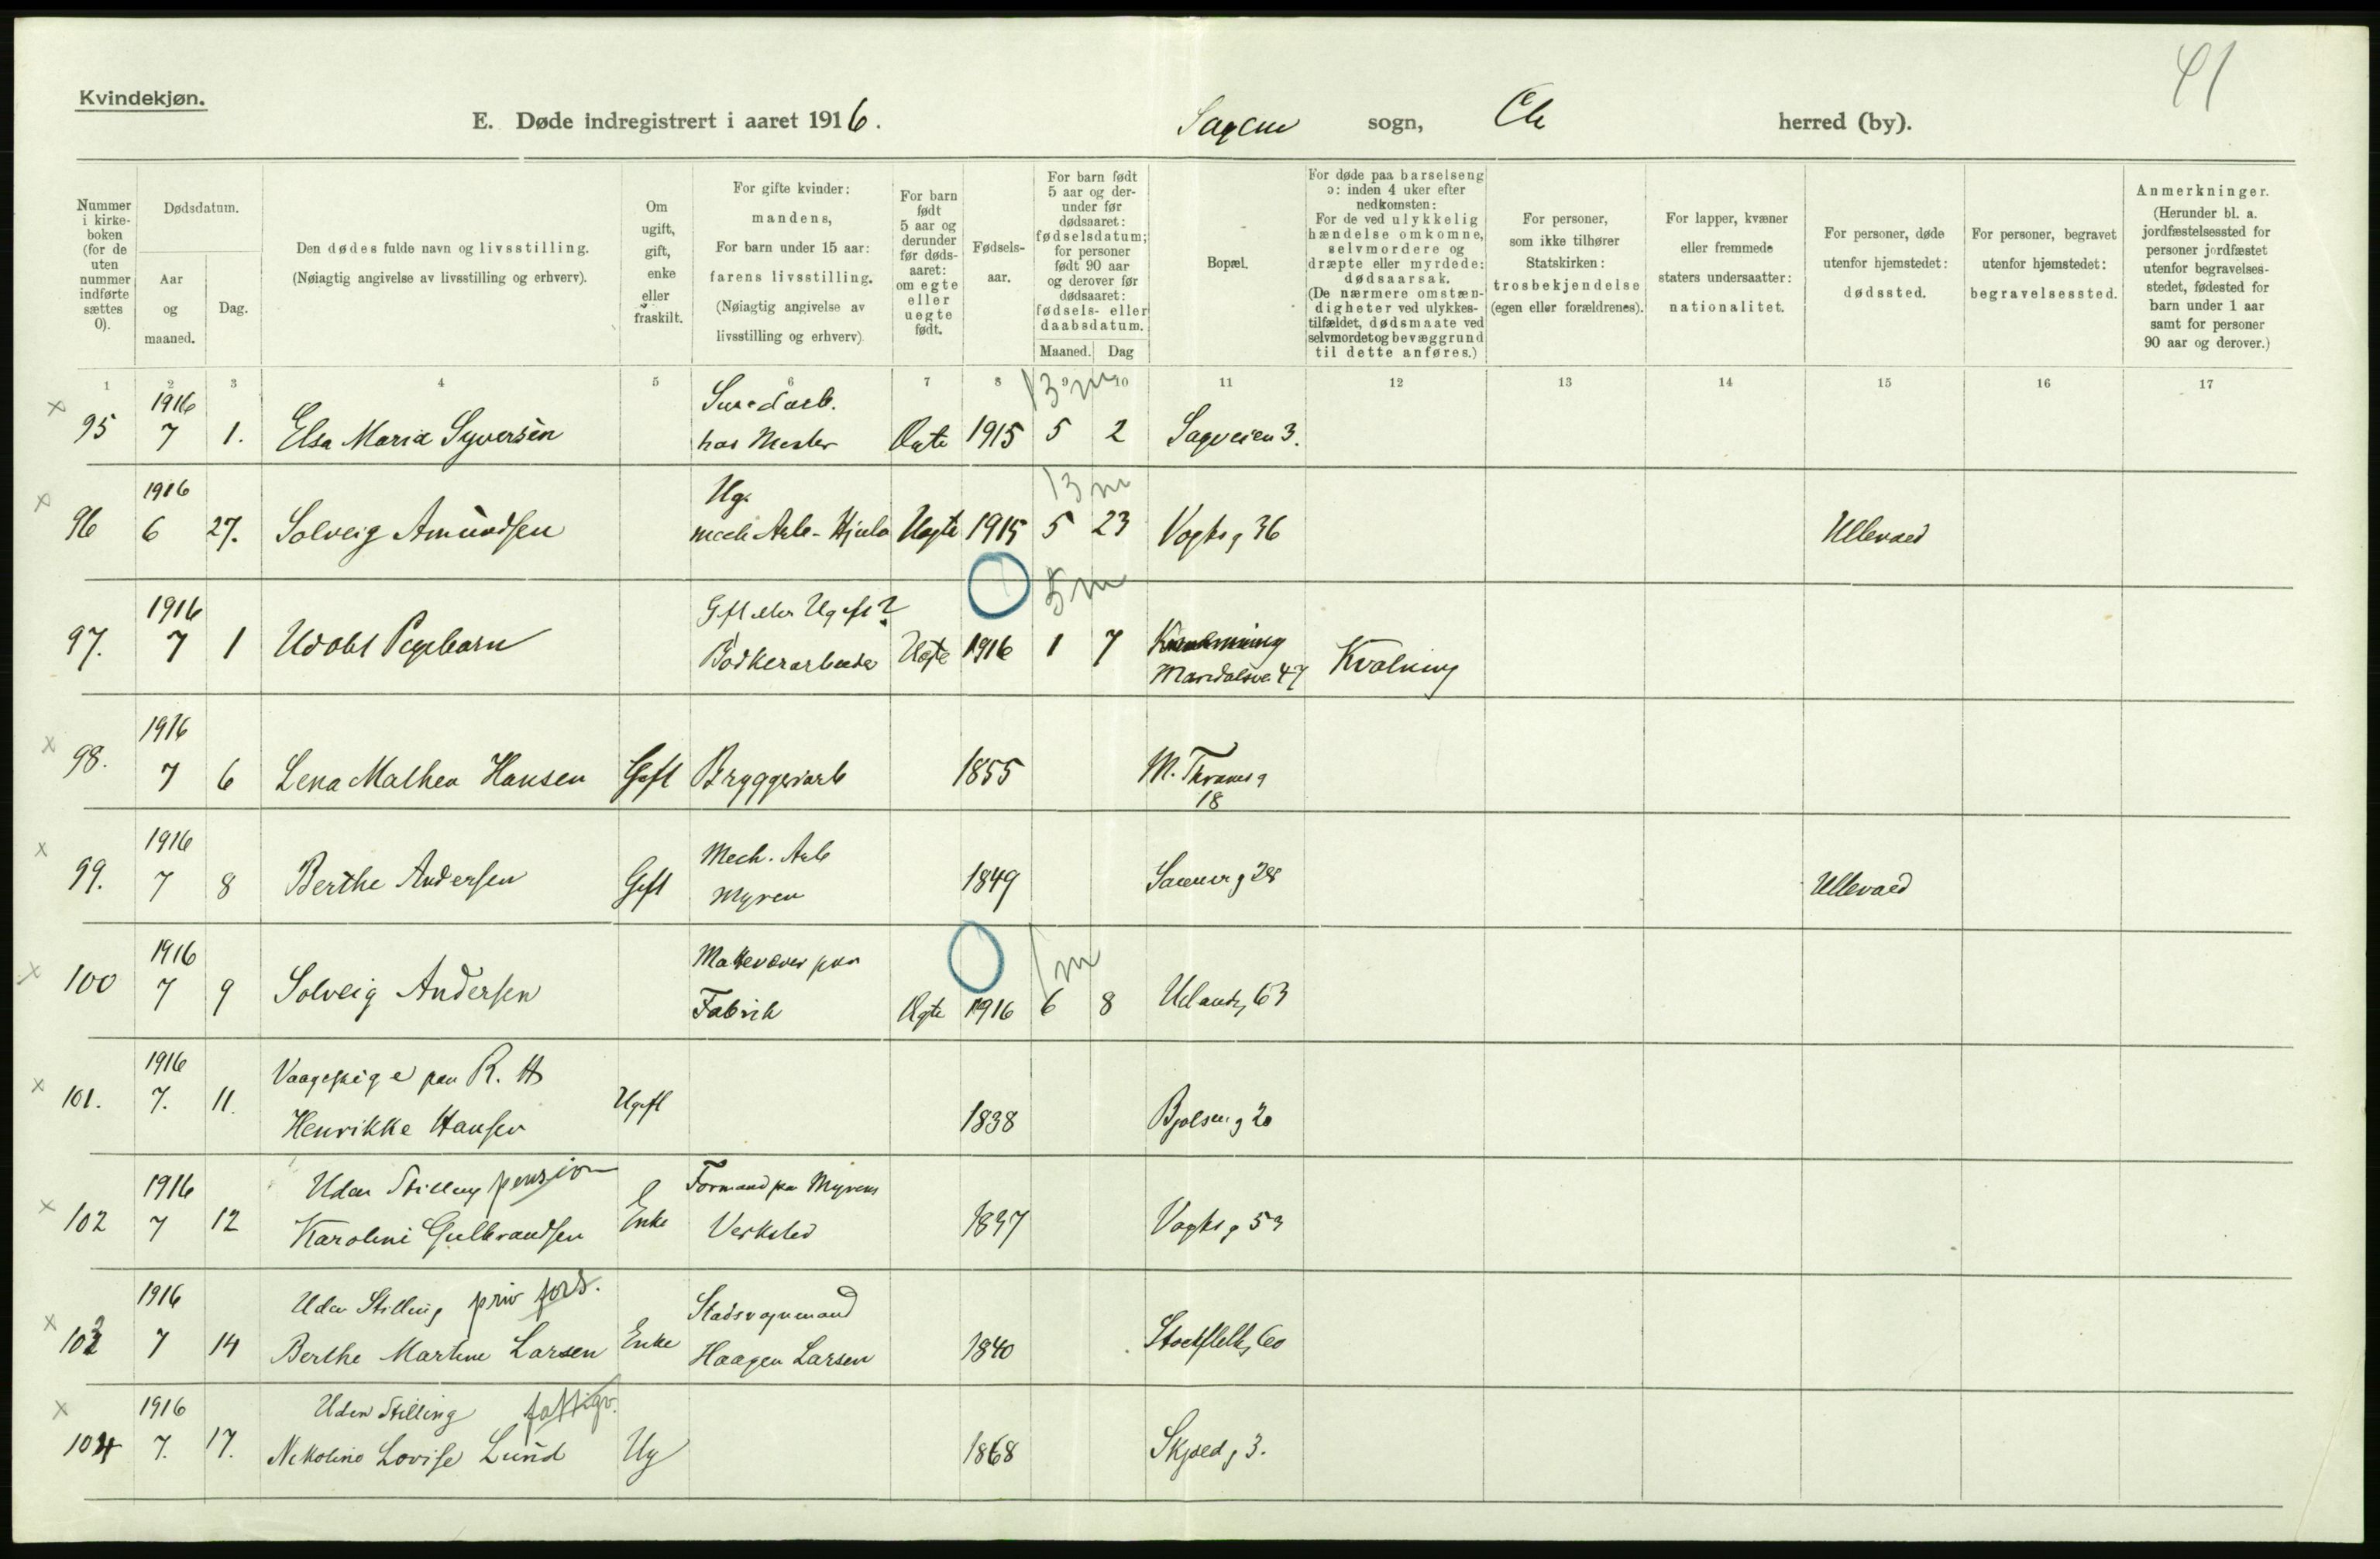 41
Kvindekjøn.
E. Døde indregistrert i aaret 1916.
Sagene sogn, herred (by).
Nummer i kirke-boken (for de uten nummer indførte sættes 0).
Dødsdatum.
Aar og maaned.
Dag.
Den dødes fulde navn og livsstilling.
(Nøiagtig angivelse av livsstilling og erhverv).
Om ugift, gift, enke eller fraskilt.
For gifte kvinder:
mandens,
For barn under 15 aar:
farens livsstilling.
(Nøiagtig angivelse av
livsstilling og erhverv)
For barn født 5 aar og derunder før døds-aaret: om egte eller uegte født.
Fødsels-aar.
For barn født 5 aar og der-under før dødsaaret: fødselsdatum; for personer født 90 aar og derover før dødsaaret: fødsels- eller daabsdatum.
Maaned. Dag
Bopæl.
For døde paa barselseng
ɔ: inden 4 uker efter
nedkomsten:
For de ved ulykkelig
hændelse omkomne,
selvmordere og
dræpte eller myrdede:
dødsaarsak.
(De nærmere omstæn-
digheter ved ulykkes-
tilfældet, dødsmaate ved
selvmordet og bevæggrund
til dette anføres.)
For personer,
som ikke tilhører
Statskirken:
trosbekjendelse
(egen eller forældrenes).
For lapper, kvæner
eller fremmede
staters undersaatter:
nationalitet.
For personer, døde
utenfor hjemstedet:
dødssted.
For personer, begravet
utenfor hjemstedet:
begravelsessted.
Anmerkninger.
(Herunder bl. a.
jordfæstelsessted for
personer jordfæstet
utenfor begravelses-
stedet, fødested for
barn under 1 aar
samt for personer
90 aar og derover.)
1 2 3 4 5 6 7 8 9 10 11 12 13 14 15 16 17
1916 13 m
95 7 1. Elsa Maria Syversen hos Ægte 1915 5 2 Sagveien 3.
1916 Ug. 13 m
96 6 27. Solveig Amundsen mech Arb- Hjula Uægte 1915 5 23 Vogts g 36 Ullevaal
1916 Gift eller Ugift? 5 m
97. 7 1 Udøbt Pigebarn Bødkerarbeider Uægte 1916 1 7 Maridalsv. 47 Kvælning
1916
98. 7 6 Lena Mathea Hansen Gift Bryggeriarb 1855 M. Thranes g
18
1916 Mech. Arb
99. 7 8 Berthe Andersen Gift Myren 1849 28 Ullevaal
1916 paa 1 m
100 7 9 Solveig Andersen Fabrik Ægte 1916 6 8 Uelandsg 63
1916 Vaagepige paa R. H
101. 7. 11. Henrikke Hansen Ugift 1838 Bjølseng 20
1916 Uden Stilling pension Formand paa Myrens
102 7 12 Karoline Gulbrandsen Enke Verksted 1837 Vogts g 53
1916 Uden Stilling priv fors. Stadsvognmand
103 7 14 Berthe Martine Larsen Enke Haagen Larsen 1840 Stockflethsg 60
1916 Uden Stilling fattigv.
104 7. 17. Nikoline Lovise Lund Ug 1868 Skjoldg 3.